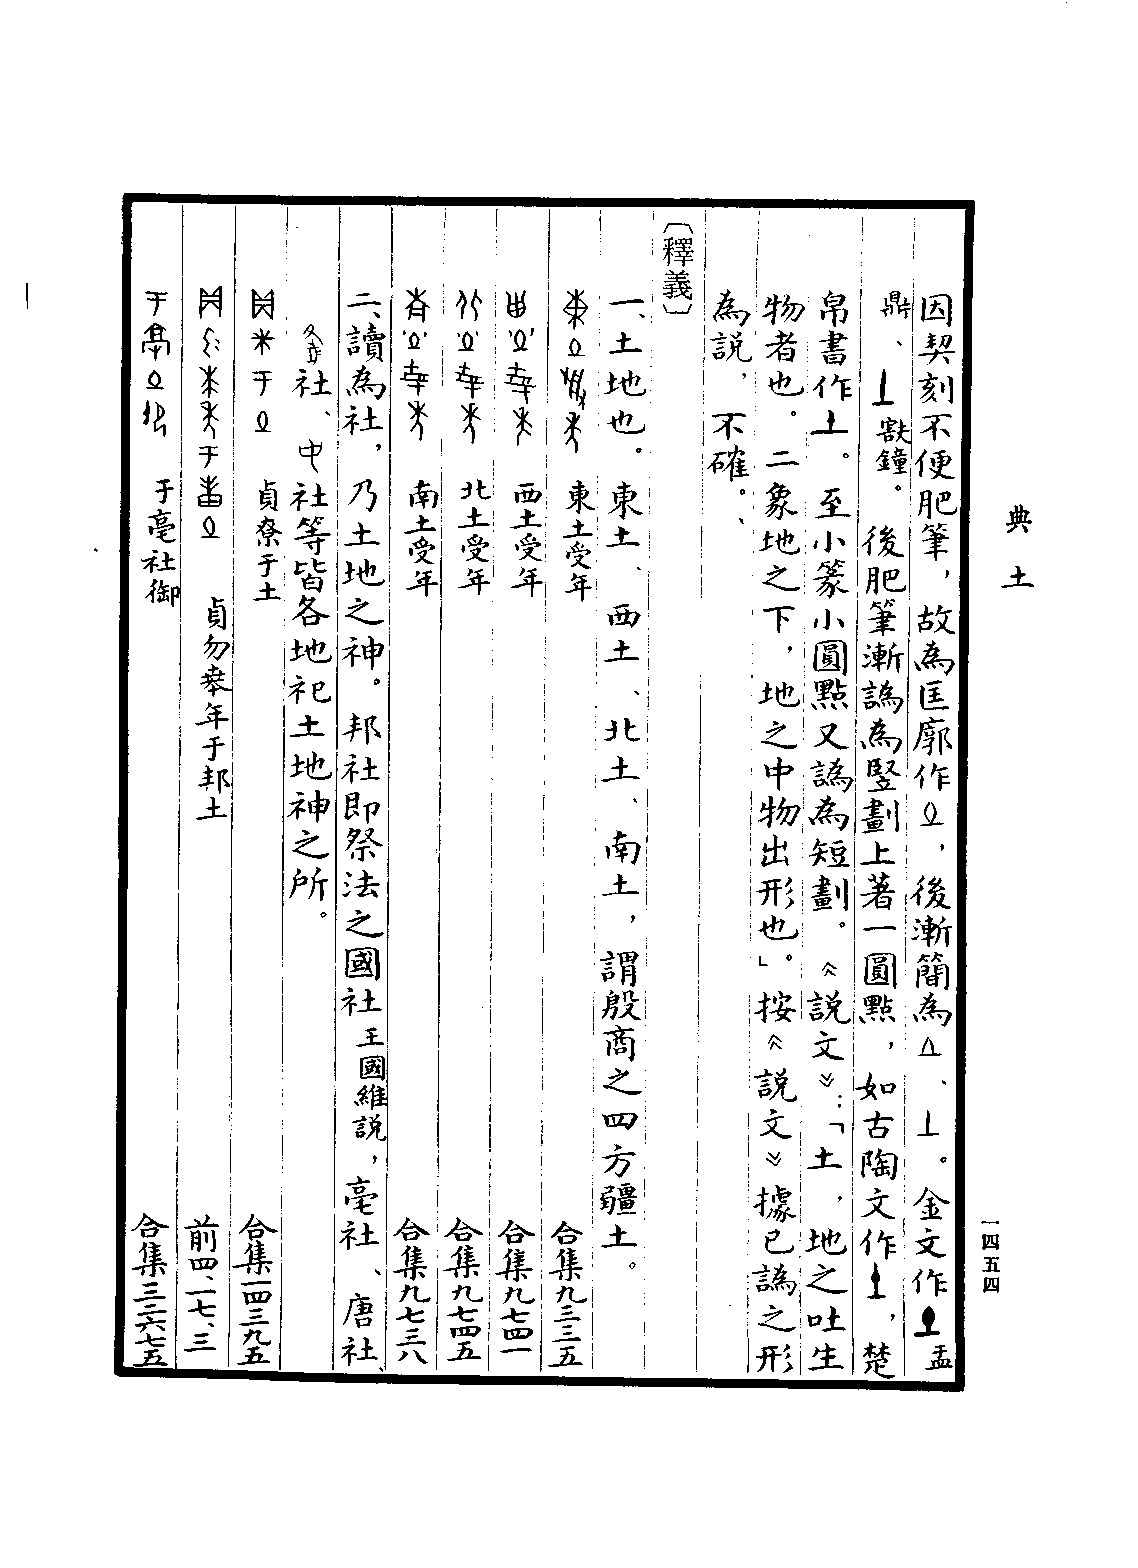 典 土
一四五四
因契刻不便肥筆，故為匡廓作，後漸簡為、丄。金文作盂
鼎、㝬鐘。後肥筆漸譌為豎劃上著一圓點，如古陶文作，楚
帛書作。至小篆小圓點又譌為短劃。《說文》：「土，地之吐生
物者也。二象地之下，地之中物出形也」。按《說文》據已譌之形
為說，不確。
〔釋義〕
一、土地也。東土、西土、北土、南土，謂殷商之四方疆土。
東土受年 合集九三三五
西土受年 合集九七四一
北土受年 合集九七四五
南土受年 合集九七三八
二、讀為社，乃土地之神。邦社即祭法之國社王國維說，亳社、唐社、
社、中社等皆各地祀土地神之所。
貞尞于土 合集一四三九五
貞勿年于邦土 前四、一七、三
于亳社御 合集三二六七五